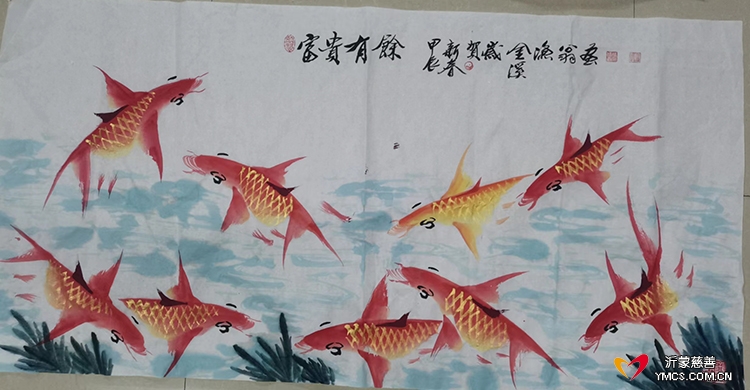 富貴有餘
甲辰新春賀歲金溪漁翁畫
沂蒙慈善
YMCS.COM.CN